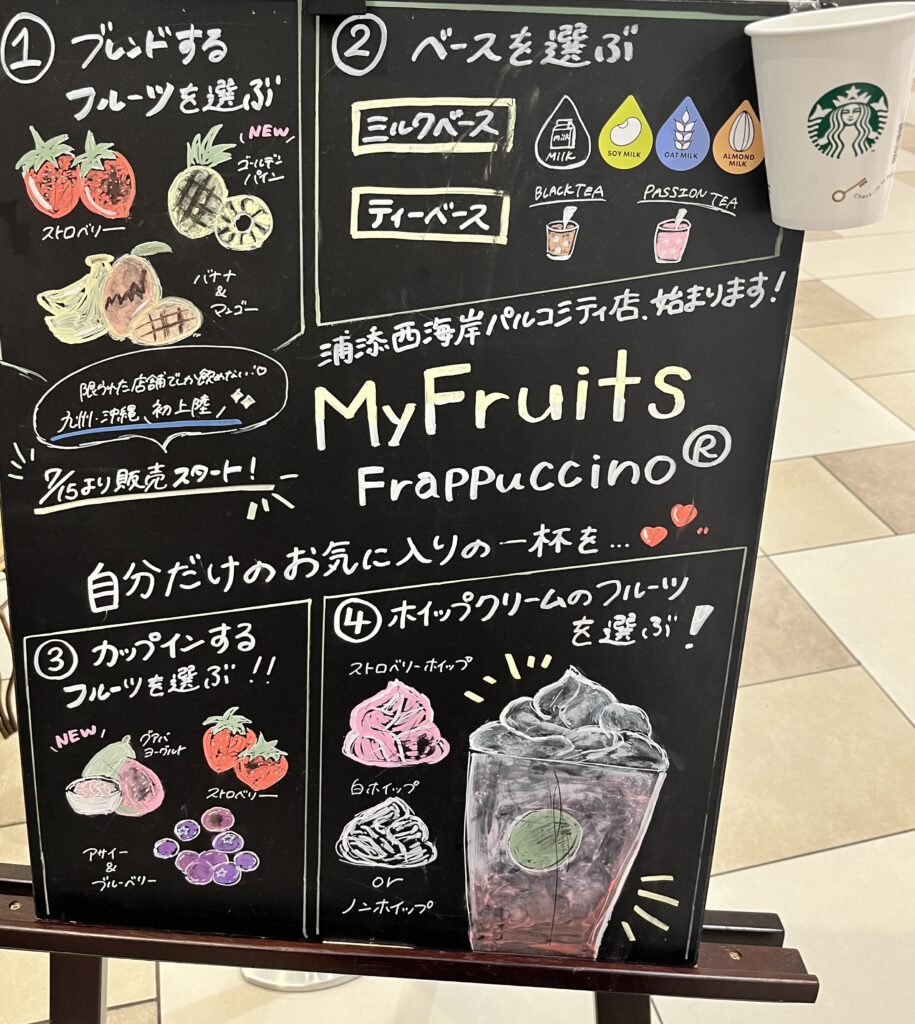 ① ブレンドする
フルーツを選ぶ
ストロベリー
NEW
ゴールデン
パイン
バナナ
&
マンゴー
② ベースを選ぶ
ミルクベース
MILK
MILK
SOY MILK
OAT MILK
ALMOND
MILK
ティーベース
BLACK TEA
PASSION TEA
浦添西海岸パルコシティ店、始まります!
MyFruits
Frappuccino®
限られた店舗でしか飲めない♡
九州・沖縄、初上陸
7/15より販売スタート!
自分だけのお気に入りの一杯を…
③ カップインする
フルーツを選ぶ!!
NEW
グアバ
ヨーグルト
ストロベリー
アサイー
&
ブルーベリー
④ ホイップクリームのフルーツ
を選ぶ!
ストロベリーホイップ
白ホイップ
or
ノンホイップ